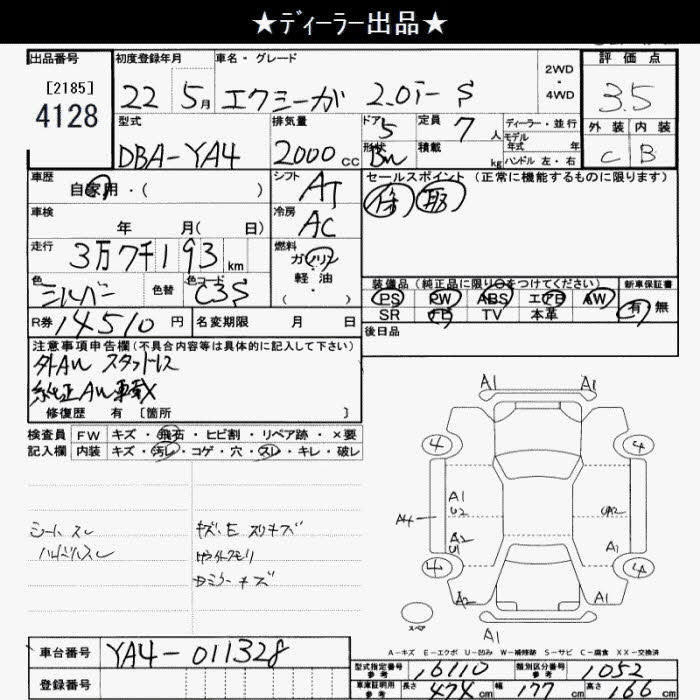 ★ディーラー出品★
出品番号 初度登録年月 車名・グレード 2WD・4WD 評価点
[2185]
4128 22 5月 エクシーガ 2.0i-S 3.5
型式 排気量 ドア 5 定員 7人 ディーラー・並行 外装 内装
モデル年式 年
DBA-YA4 2000cc 形状 積載 kg ハンドル 左・右 C B
車歴 自家用・( ) シフト AT セールスポイント(正常に機能するものに限ります)
保 取
車検 年 月( 日) 冷房 AC
走行 3万7千193km 燃料 ガソリン・軽油・( )
色 シルバー 色替 色コード C3S
装備品(純正品に限り○をつけてください) 新車保証書
PS PW ABS エアB AW 有 無
SR ナビ TV 本革
R券 14510円 名変期限 月 日 後日品
注意事項申告欄(不具合内容等は具体的に記入して下さい)
外AW スタッドレス
純正AW車載X
修復歴 有 [箇所 ]
検査員 FW キズ・飛石・ヒビ割・リペア跡・×要
記入欄 内装 キズ・汚レ・コゲ・穴・スレ・キレ・破レ
シートスレ
ハンドルスレ
キズ、E スリキズ
ミラーキズ
A1 A1
4 4
A1 U2 UA2
A4
A2 U1 A1
4 4
A2 A1
スペア A1
A-キズ E-エクボ U-凹み W-補修跡 S-サビ C-腐食 XX-交換済
車台番号 YA4-011328
型式指定番号 参考 16110 類別区分番号 参考 1052
登録番号 車庫証明用 参考 長さ 474cm 幅 177cm 高さ 166cm